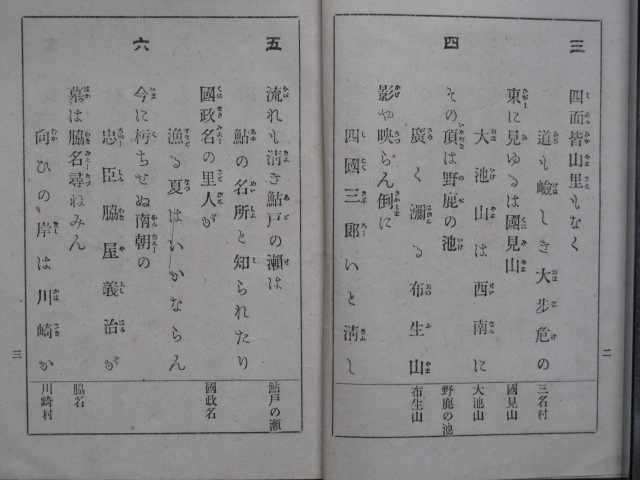 三
四面皆山里もなく
道も嶮しき大步危の
三名村
東に見ゆるは國見山
國見山
大池山は西南に
大池山
四
その頂は野鹿の池
野鹿の池
廣く瀰る布生山
布生山
影や映らん倒に
四國三郎いと淸し
二
五
流れも淸き鮎戸の瀨は
鮎戸の瀨
鮎の名所と知られたり
國政名の里人が
國政名
漁る夏はいかならん
六
今に朽ちせぬ南朝の
忠臣脇屋義治が
墓は脇名尋ねみん
脇名
向ひの岸は川崎か
川崎村
三